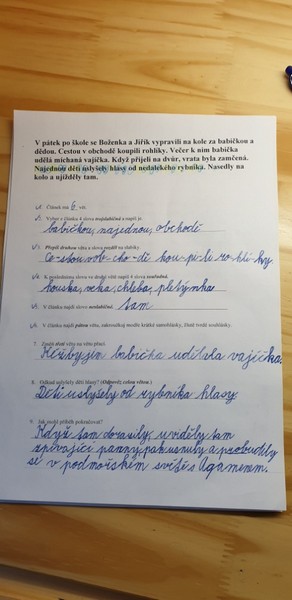 V pátek po škole se Boženka a Jiřík vypravili na kole za babičkou a
dědou. Cestou v obchodě koupili rohlíky. Večer k nim babička
udělá míchaná vajíčka. Když přijeli na dvůr, vrata byla zamčená.
Najednou děti uslyšely hlasy od nedalekého rybníka. Nasedly na
kolo a ujížděly tam.
Článek má 6 vět.
Vyber z článku 4 slova trojslabičná a napiš je.
babičkou, najednou, obchodě
Přepiš druhou větu a slova rozděl na slabiky.
Ce-stou v ob-cho-dě kou-pi-li ro-hlí-ky.
K poslednímu slovu ve druhé větě napiš 4 slova
houska, veka, chleba, pletýnka
V článku najdi slovo tam
V článku najdi pátou větu, zakroužkuj modře krátké samohlásky, žlutě tvrdé souhlásky.
7. Změň třetí větu na větu přací.
Kéž by jim babička udělala vajíčka.
8. Odkud uslyšely děti hlasy? (Odpověz celou větou.)
Děti uslyšely od rybníka hlasy.
9. Jak mohl příběh pokračovat?
Když tam dorazily, uviděly tam
zpívající panny, pak usnuly a probudily
se v podmořském světě s